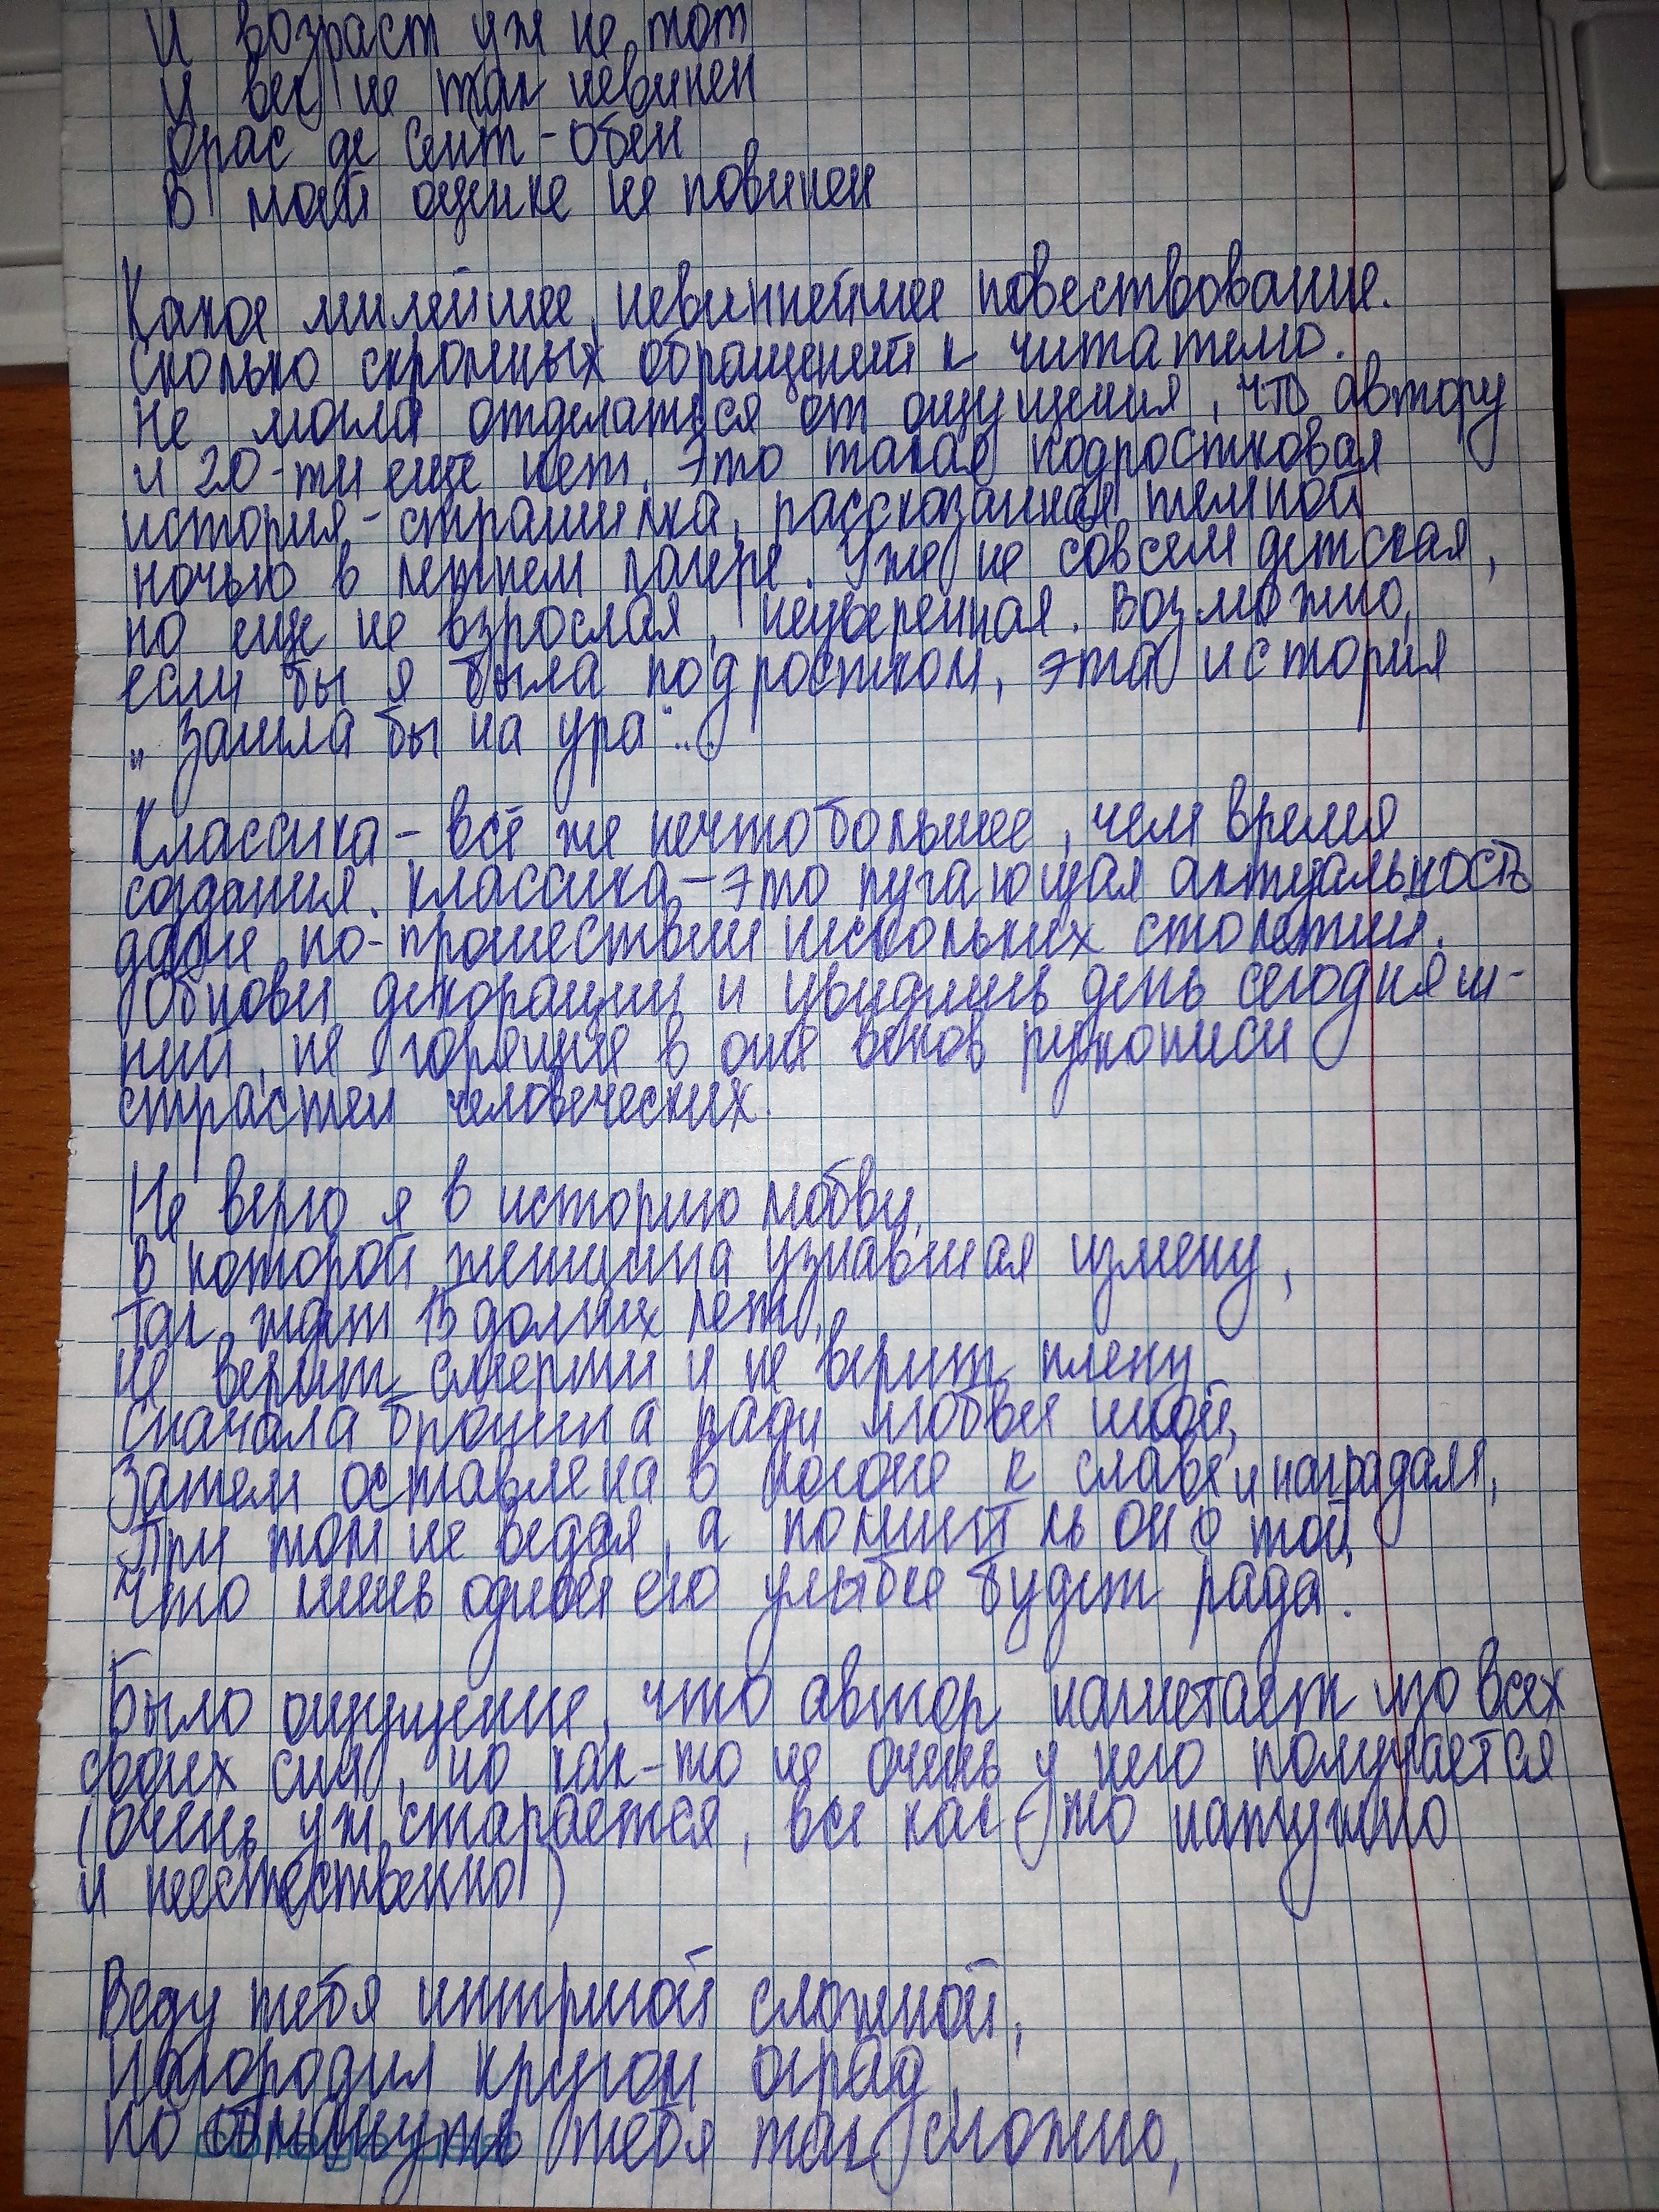 И возраст уж не тот
И век не так невинен
Орас де Сент-Обен
В моей оценке не повинен
Какое милейшее, невиннейшее повествование.
Сколько скромных обращений к читателю.
Не могла отделаться от ощущения, что автору
и 20-ти еще нет. Это такая подростковая
история-страшилка, рассказанная темной
ночью в летнем лагере. Уже не совсем детская,
но еще не взрослая, неуверенная. Возможно,
если бы я была подростком, эта история
„Зашла бы на ура"...
Классика - всё же нечто большее, чем время
создания. Классика - это пугающая актуальность
даже по-прошествии нескольких столетий.
Обнови декорации и увидишь день сегодняш-
ний, не горящие в огне веков рукописи
страстей человеческих.
Не верю я в историю любви,
В которой женщина узнавшая измену,
Так ждет 15 долгих лет,
Не верит смерти и не верит плену
Сначала брошена ради любви иной,
Затем оставлена в погоне к славе и наградам,
При том не ведая, а помнит ль он о той,
Что лишь одной его улыбке будет рада.
Было ощущение, что автор нагнетает изо всех
своих сил, но как-то не очень у него получается
(очень уж старается, все как-то натужно
и неестественно)
Веду тебя интригой сложной,
Нагородил кругом оград,
Но обмануть тебя так сложно,